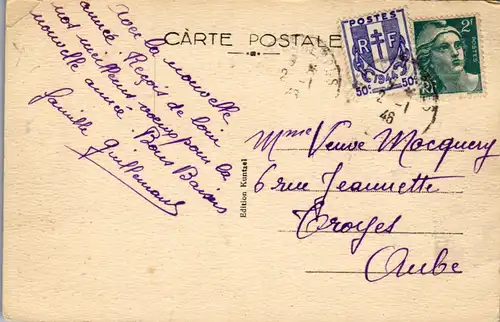 CARTE POSTALE
Voici la nouvelle
année. Reçois de loin
nos meilleurs voeux pour la
nouvelle année. Bons Baisers
famille Guillemard
Edition Kuntzel
POSTES
RF
50c 50c
2F
POSTES
RF
2 -1
46
Mme Veuve Macquery
6 rue Jeannette
Troyes
Aube